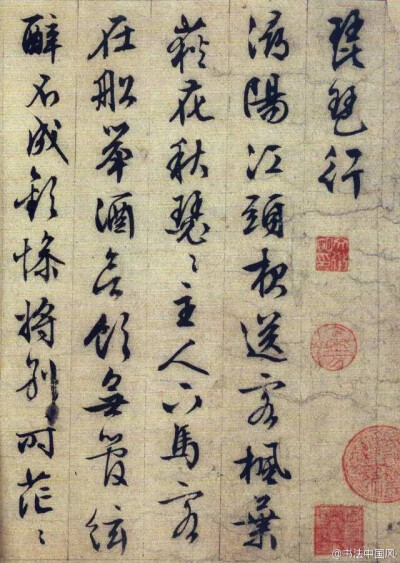 琵琶行
潯陽江頭夜送客楓葉
荻花秋瑟〻主人下馬客
在船舉酒欲飲無管絃
醉不成歡慘將別時茫〻
@书法中国风